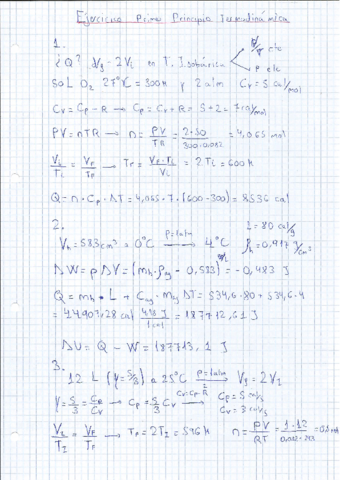 Ejercicios Primer Principio Termodinámica
1.
¿Q? Vf = 2Vi en T. Isobárica
p cte
50L O2 27°C = 300K y 2 atm Cv = 5 cal/mol
Cv = Cp - R → Cp = Cv + R = 5 + 2 = 7 cal/mol
PV = nTR → n = PV/TR = 2·50/300·0.082 = 4,065 mol
Vi/Ti = Vf/Tf → Tf = Vf·Ti/Vi = 2Ti = 600K
Q = n·Cp·ΔT = 4,065·7·(600-300) = 8536 cal
2.
L = 80 cal/g
Vh = 583cm³ a 0°C p=1atm → 4°C ρh = 0,917 g/cm³
ΔW = pΔV = (mh·ρag - 0,583) = -0,483 J
Q = mh·L + Cag·mag ΔT = 534,6·80 + 534,6·4
= 44903,28 cal 4,18 J/1cal = 187712,61 J
ΔU = Q - W = 187713,1 J
3.
12 L (γ=5/3) a 25°C p=1atm → Vf = 2Vi
γ = 5/3 = Cp/Cv → Cp = 5/3 Cv Cv=Cp-R → Cp = 5 cal/g
Cv = 3 cal/g
Vi/Ti = Vf/Tf → Tf = 2Ti = 596K n = PV/RT = 1·12/0.082·298